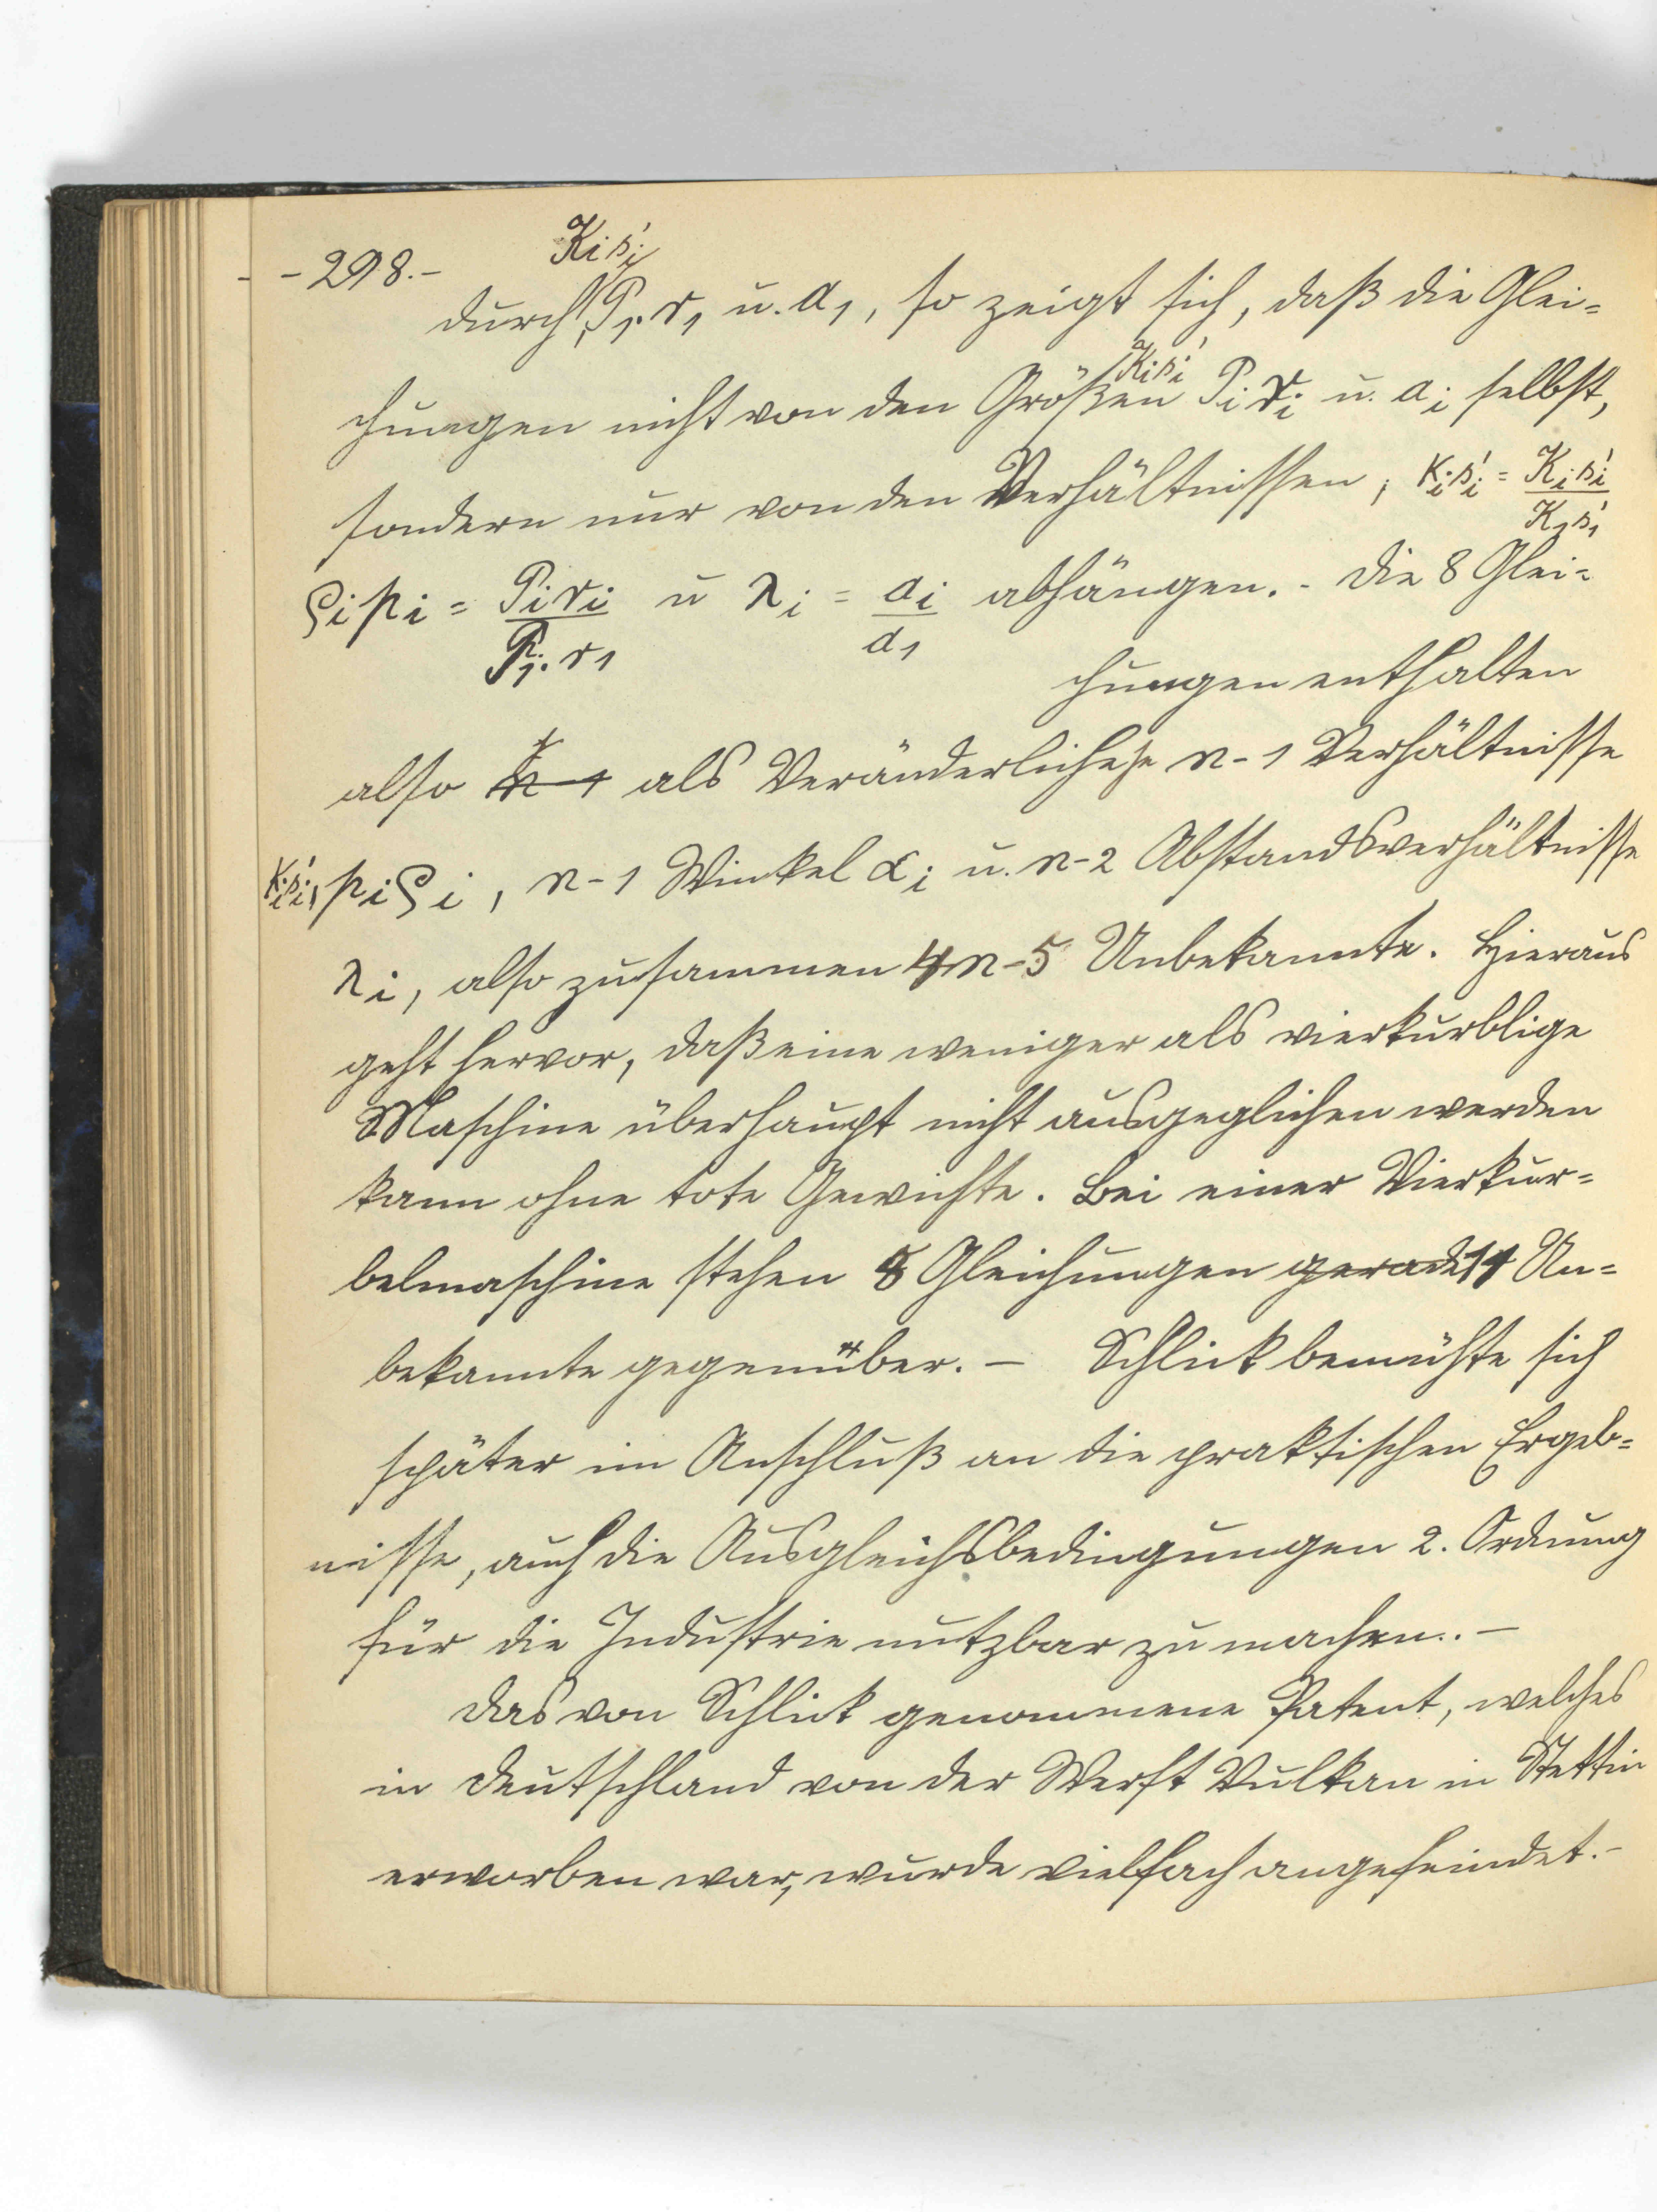 - 298. -
K_i s'_i
durch, P_1 . r_1 u. a_1, so zeigt sich, daß die Glei=
K_i s'_i
chungen nicht von den Größen P_i r_i u. a_i selbst,
sondern nur von den Verhältnissen, κ_i s'_i = K_i s'_i / K_1 s'_1
ρ_i p_i = P_i r_i / P_1 . r_1 u λ_i = a_i / a_1 abhängen. - Die 8 Glei=
chungen enthalten
also als Veränderliche n-1 Verhältnisse
κ_i s'_i, p_i ρ_i, n-1 Winkel α_i u. n-2 Abstandsverhältnisse
λ_i, also zusammen 4n-5 Unbekannte. Hieraus
geht hervor, daß eine weniger als vierkurblige
Maschine überhaupt nicht ausgeglichen werden
kann ohne tote Gewichte. Bei einer Vierkur=
belmaschine stehen 8 Gleichungen gerade 11 Un=
bekannte gegenüber. – Schlick bemühte sich
später im Anschluß an die praktischen Ergeb=
nisse, auch die Ausgleichsbedingungen 2. Ordnung
für die Industrie nutzbar zu machen. –
Das von Schlick genommene Patent, welches
in Deutschland von der Werft Vulkan in Stettin
erworben war, wurde vielfach angefeindet. -